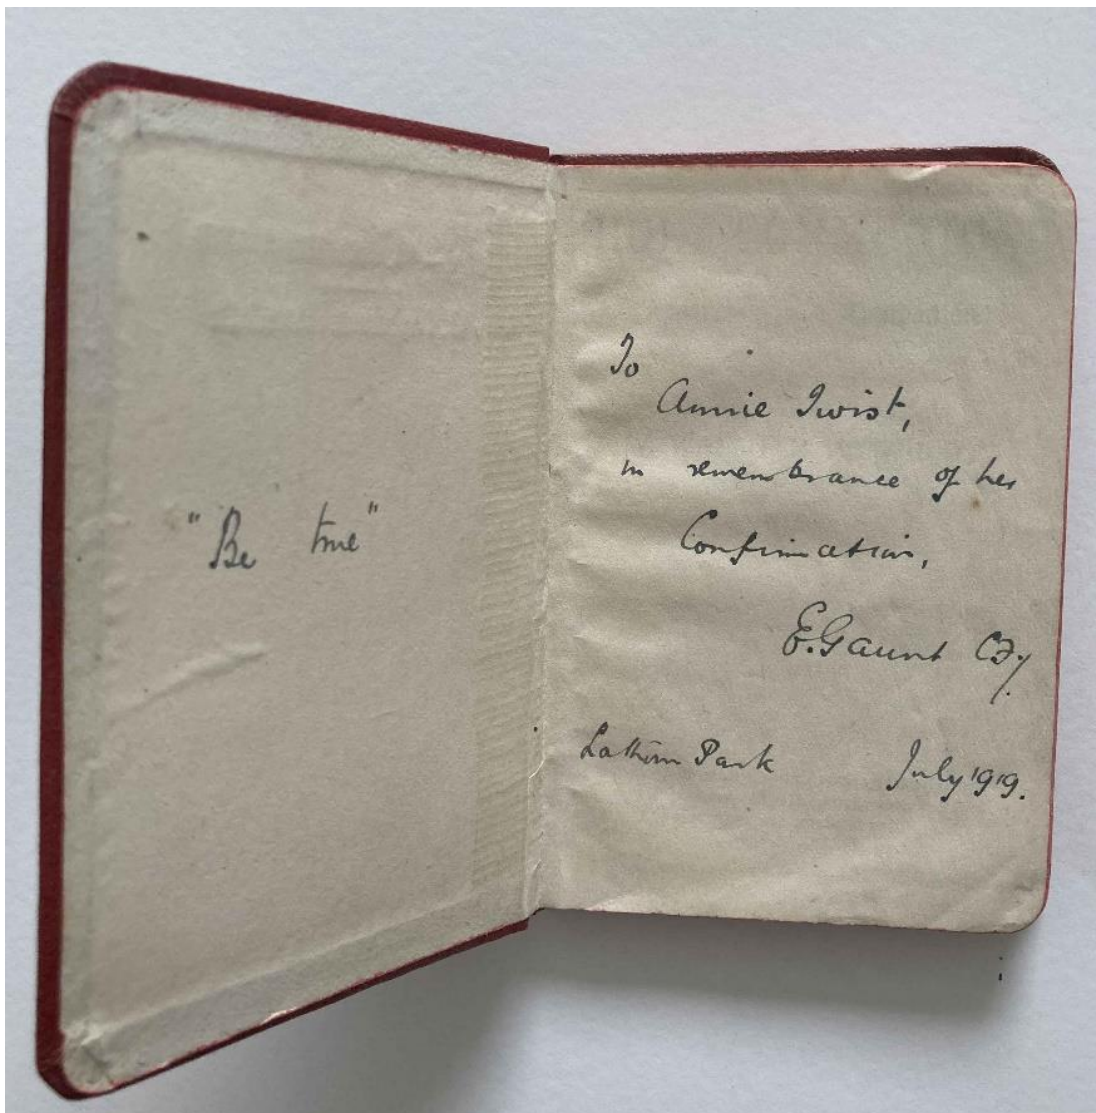 "Be true"
To
Annie Twist,
in remembrance of her
Confirmation,
E. Gaunt
Lathom Park July 1919.